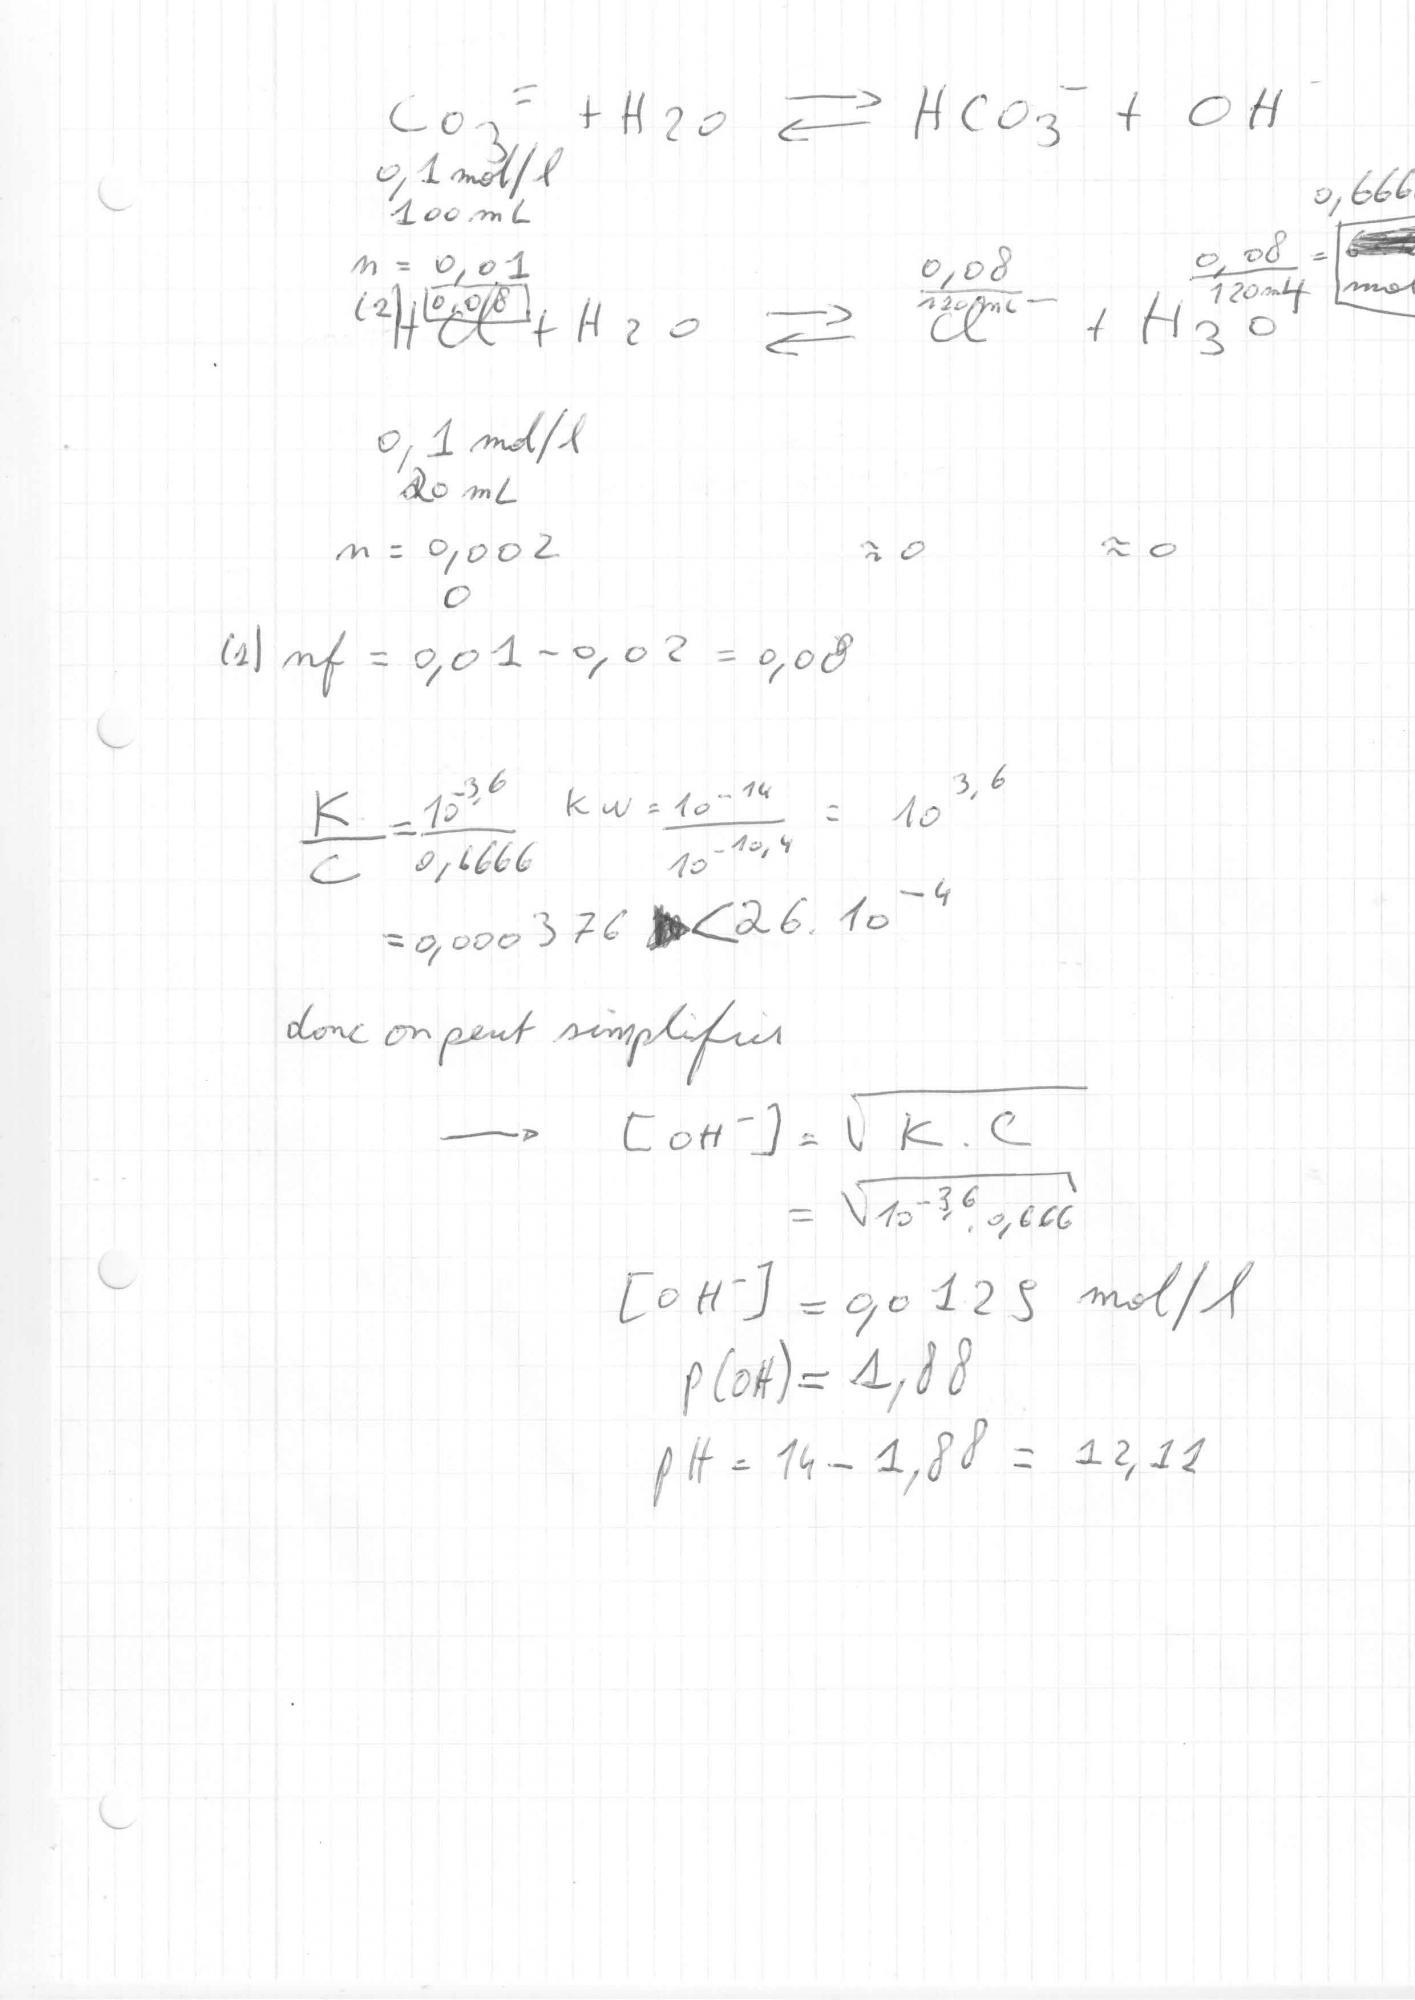 CO3= + H2O ⇌ HCO3- + OH-
0,1 mol/l
100 mL
0,666
n = 0,01
0,08/120mL
0,08/120mL =
mol
(2) 0,08
HCl + H2O ⇌ Cl- + H3O
0,1 mol/l
20 mL
n = 0,002 ≈ 0 ≈ 0
0
(1) nf = 0,01 - 0,02 = 0,08
K/C = 10^-3,6/0,6666 Kw = 10^-14/10^-10,4 = 10^3,6
= 0,000376 < 26. 10^-4
donc on peut simplifier
→ [OH-] = √K.C
= √10^-3,6 . 0,666
[OH-] = 0,0129 mol/l
p(OH) = 1,88
pH = 14 - 1,88 = 12,11